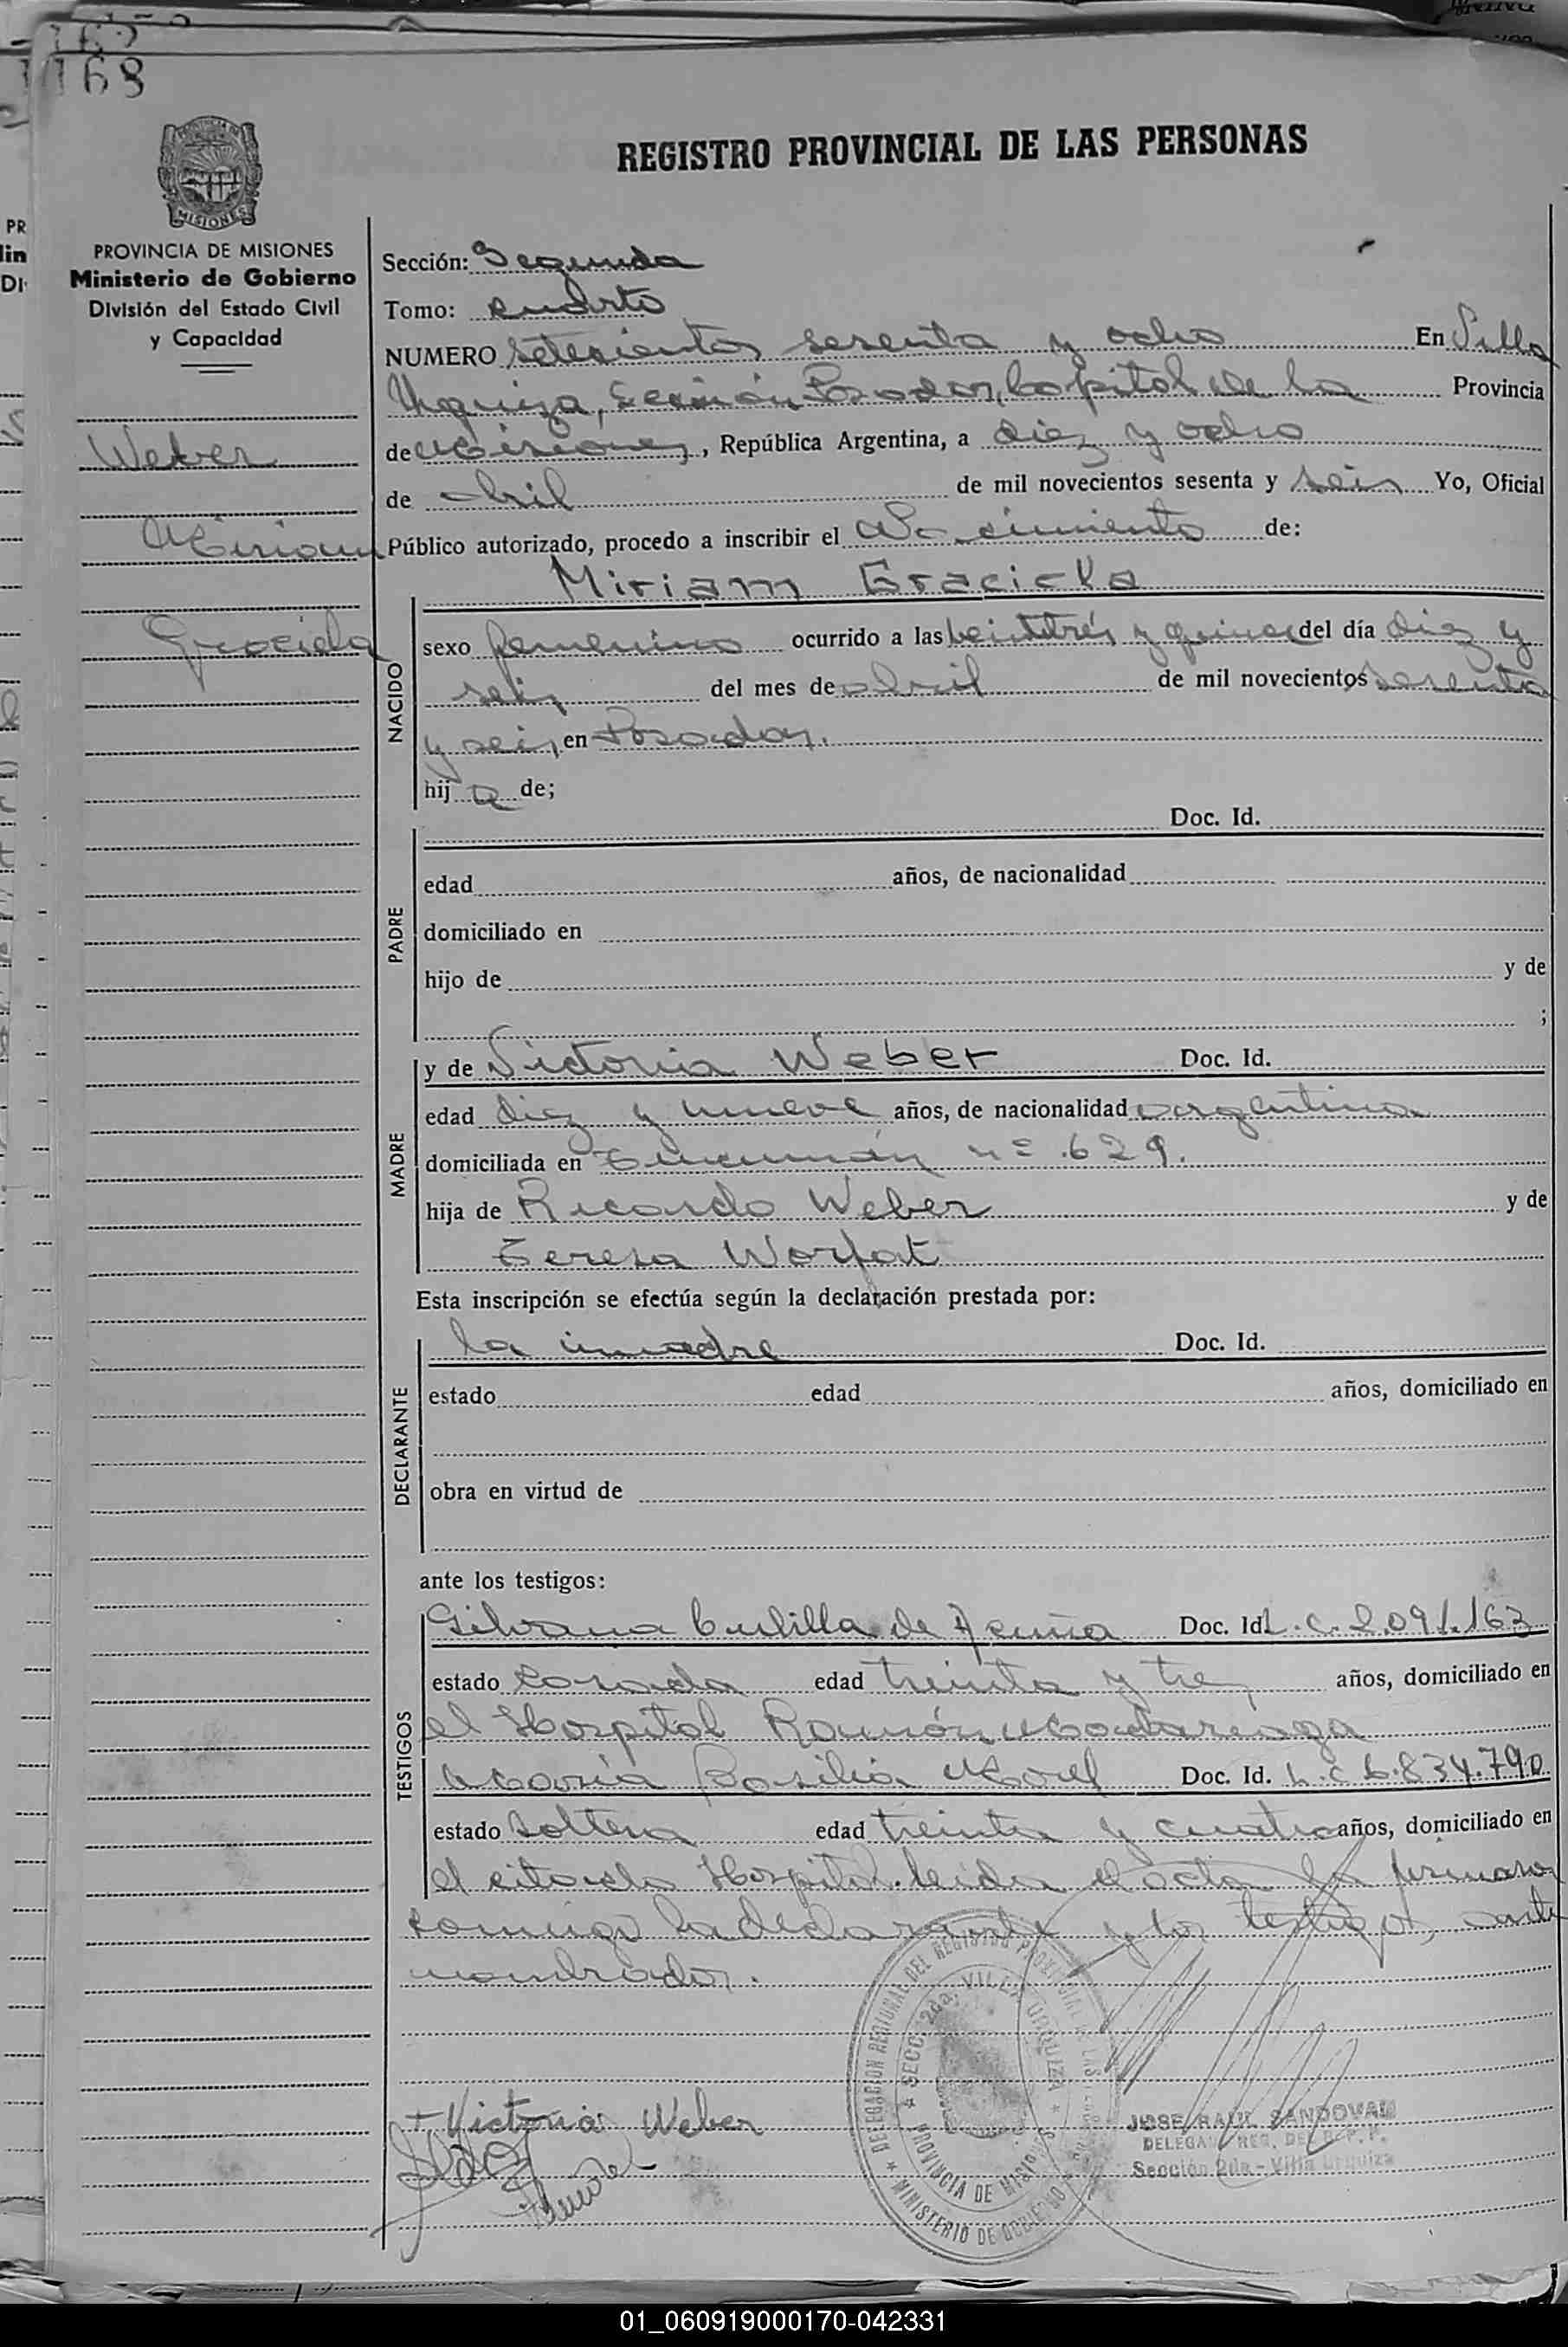 168
REGISTRO PROVINCIAL DE LAS PERSONAS
MISIONES
PROVINCIA DE MISIONES
Ministerio de Gobierno
División del Estado Civil
y Capacidad
Weber
Miriam
Graciela
Sección: Segunda
Tomo: cuarto
NUMERO setecientos sesenta y ocho En Villa
Urquiza, Sección Posadas, Capital de la Provincia
de Misiones, República Argentina, a diez y ocho
de abril de mil novecientos sesenta y seis Yo, Oficial
Público autorizado, procedo a inscribir el Nacimiento de:
Miriam Graciela
NACIDO
sexo femenino ocurrido a las veintitrés y quince del día diez y
seis del mes de abril de mil novecientos sesenta
y seis, en Posadas.
hij a de;
PADRE
Doc. Id.
edad años, de nacionalidad
domiciliado en
hijo de y de
;
MADRE
y de Victoria Weber Doc. Id.
edad diez y nueve años, de nacionalidad argentina
domiciliada en Tucumán nº 629.
hija de Ricardo Weber y de
Teresa Worfat
Esta inscripción se efectúa según la declaración prestada por:
DECLARANTE
la madre Doc. Id.
estado edad años, domiciliado en
obra en virtud de
ante los testigos:
TESTIGOS
Silvana de Acuña Doc. Id L.C. 2.091.163
estado casada edad treinta y tres años, domiciliado en
el Hospital Ramón Madariaga
María Basilia Morel Doc. Id. L.C 6.834.790
estado soltera edad treinta y cuatro años, domiciliado en
el citado Hospital. Leida el acta la firmaron
conmigo la declarante y los testigos, ante
nombrados.
Victoria Weber
DELEGACION REGIONAL DEL REGISTRO PROVINCIAL DE LAS
SECC. 2da. VILLA URQUIZA
PROVINCIA DE MISIONES
MINISTERIO DE GOBIERNO
JOSE RAUL SANDOVAL
DELEGADO REG. DEL R.P.P.
Sección 2da - Villa Urquiza
01_060919000170-042331